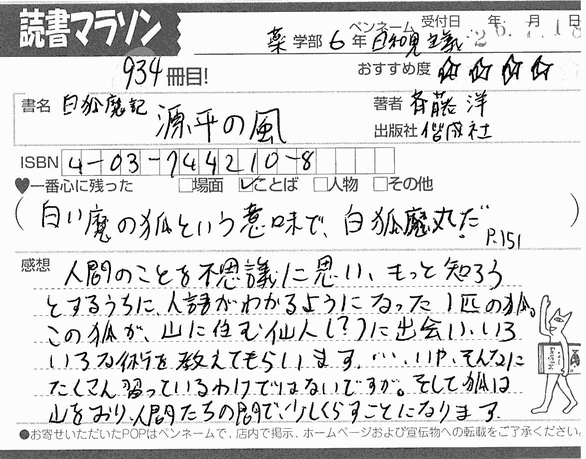 読書マラソン
薬 学部 6 年 ペンネーム 日和見主義 受付日 年 月 日
26.7.18
934 冊目! おすすめ度 ☆☆☆☆
書名 白狐魔記 源平の風
著者 斉藤 洋
出版社 偕成社
ISBN 4-03-744210-8
♥一番心に残った □場面 ☑ことば □人物 □その他
(白い魔の狐という意味で、白狐魔丸だ P.151)
感想 人間のことを不思議に思い、もっと知ろう
とするうちに、人語がわかるようになった1匹の狐。
この狐が、山に住む仙人(?)に出会い、いろ
いろな術を教えてもらいます。…、いや、そんなに
たくさん習っているわけではないですが。そして狐は
山をおり、人間たちの間で、少しくらすことになります。
●お寄せいただいたPOPはペンネームで、店内で掲示、ホームページおよび宣伝物への転載をご了承ください。